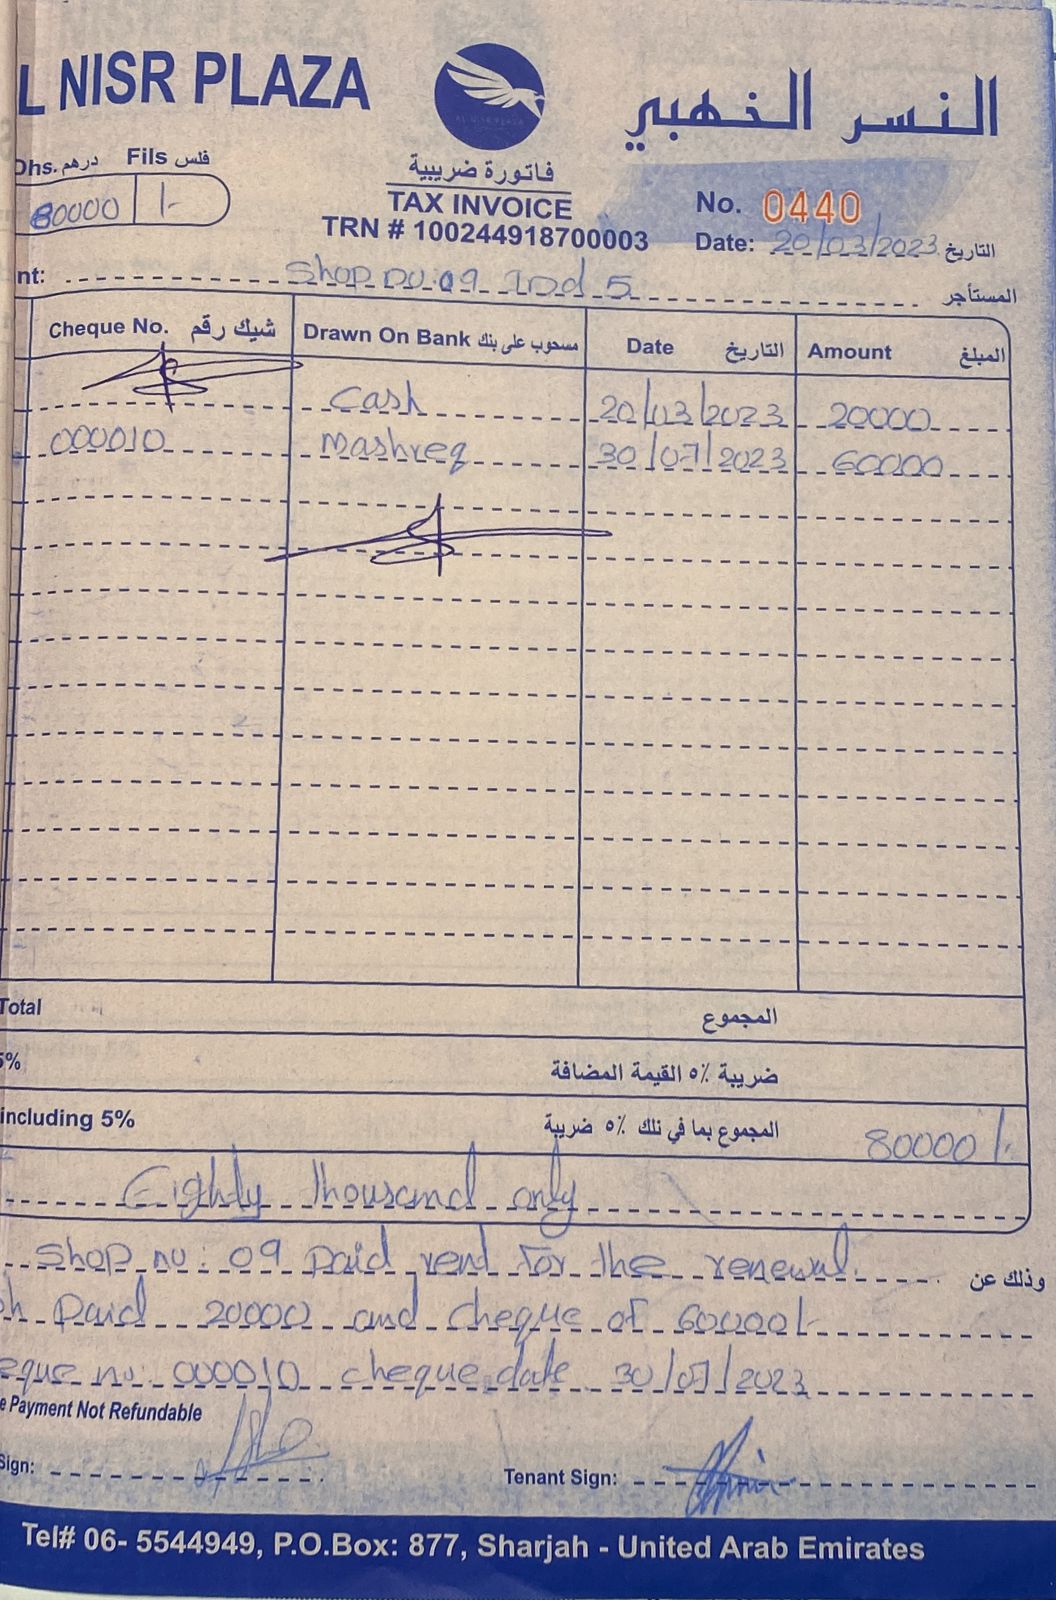 L NISR PLAZA
النسر الذهبي
AL NISR PLAZA
Dhs. درهم Fils فلس
80000 /-
فاتورة ضريبية
TAX INVOICE
TRN # 100244918700003
No. 0440
Date: 20/03/2023 التاريخ
nt: Shop no. 09 and 5 المستأجر
Cheque No. شيك رقم Drawn On Bank مسحوب على بنك Date التاريخ Amount المبلغ
Cash 20/03/2023 20000
000010 Mashreq 30/07/2023 60000
Total المجموع
5% ضريبة ٥٪ القيمة المضافة
including 5% المجموع بما في ذلك ٥٪ ضريبة 80000/-
Eighty thousand only
Shop no: 09 paid rent for the renewal. وذلك عن
sh Paid 20000 and cheque of 60000/-
eque no: 000010 cheque date 30/07/2023
e Payment Not Refundable
Sign: Tenant Sign:
Tel# 06- 5544949, P.O.Box: 877, Sharjah - United Arab Emirates